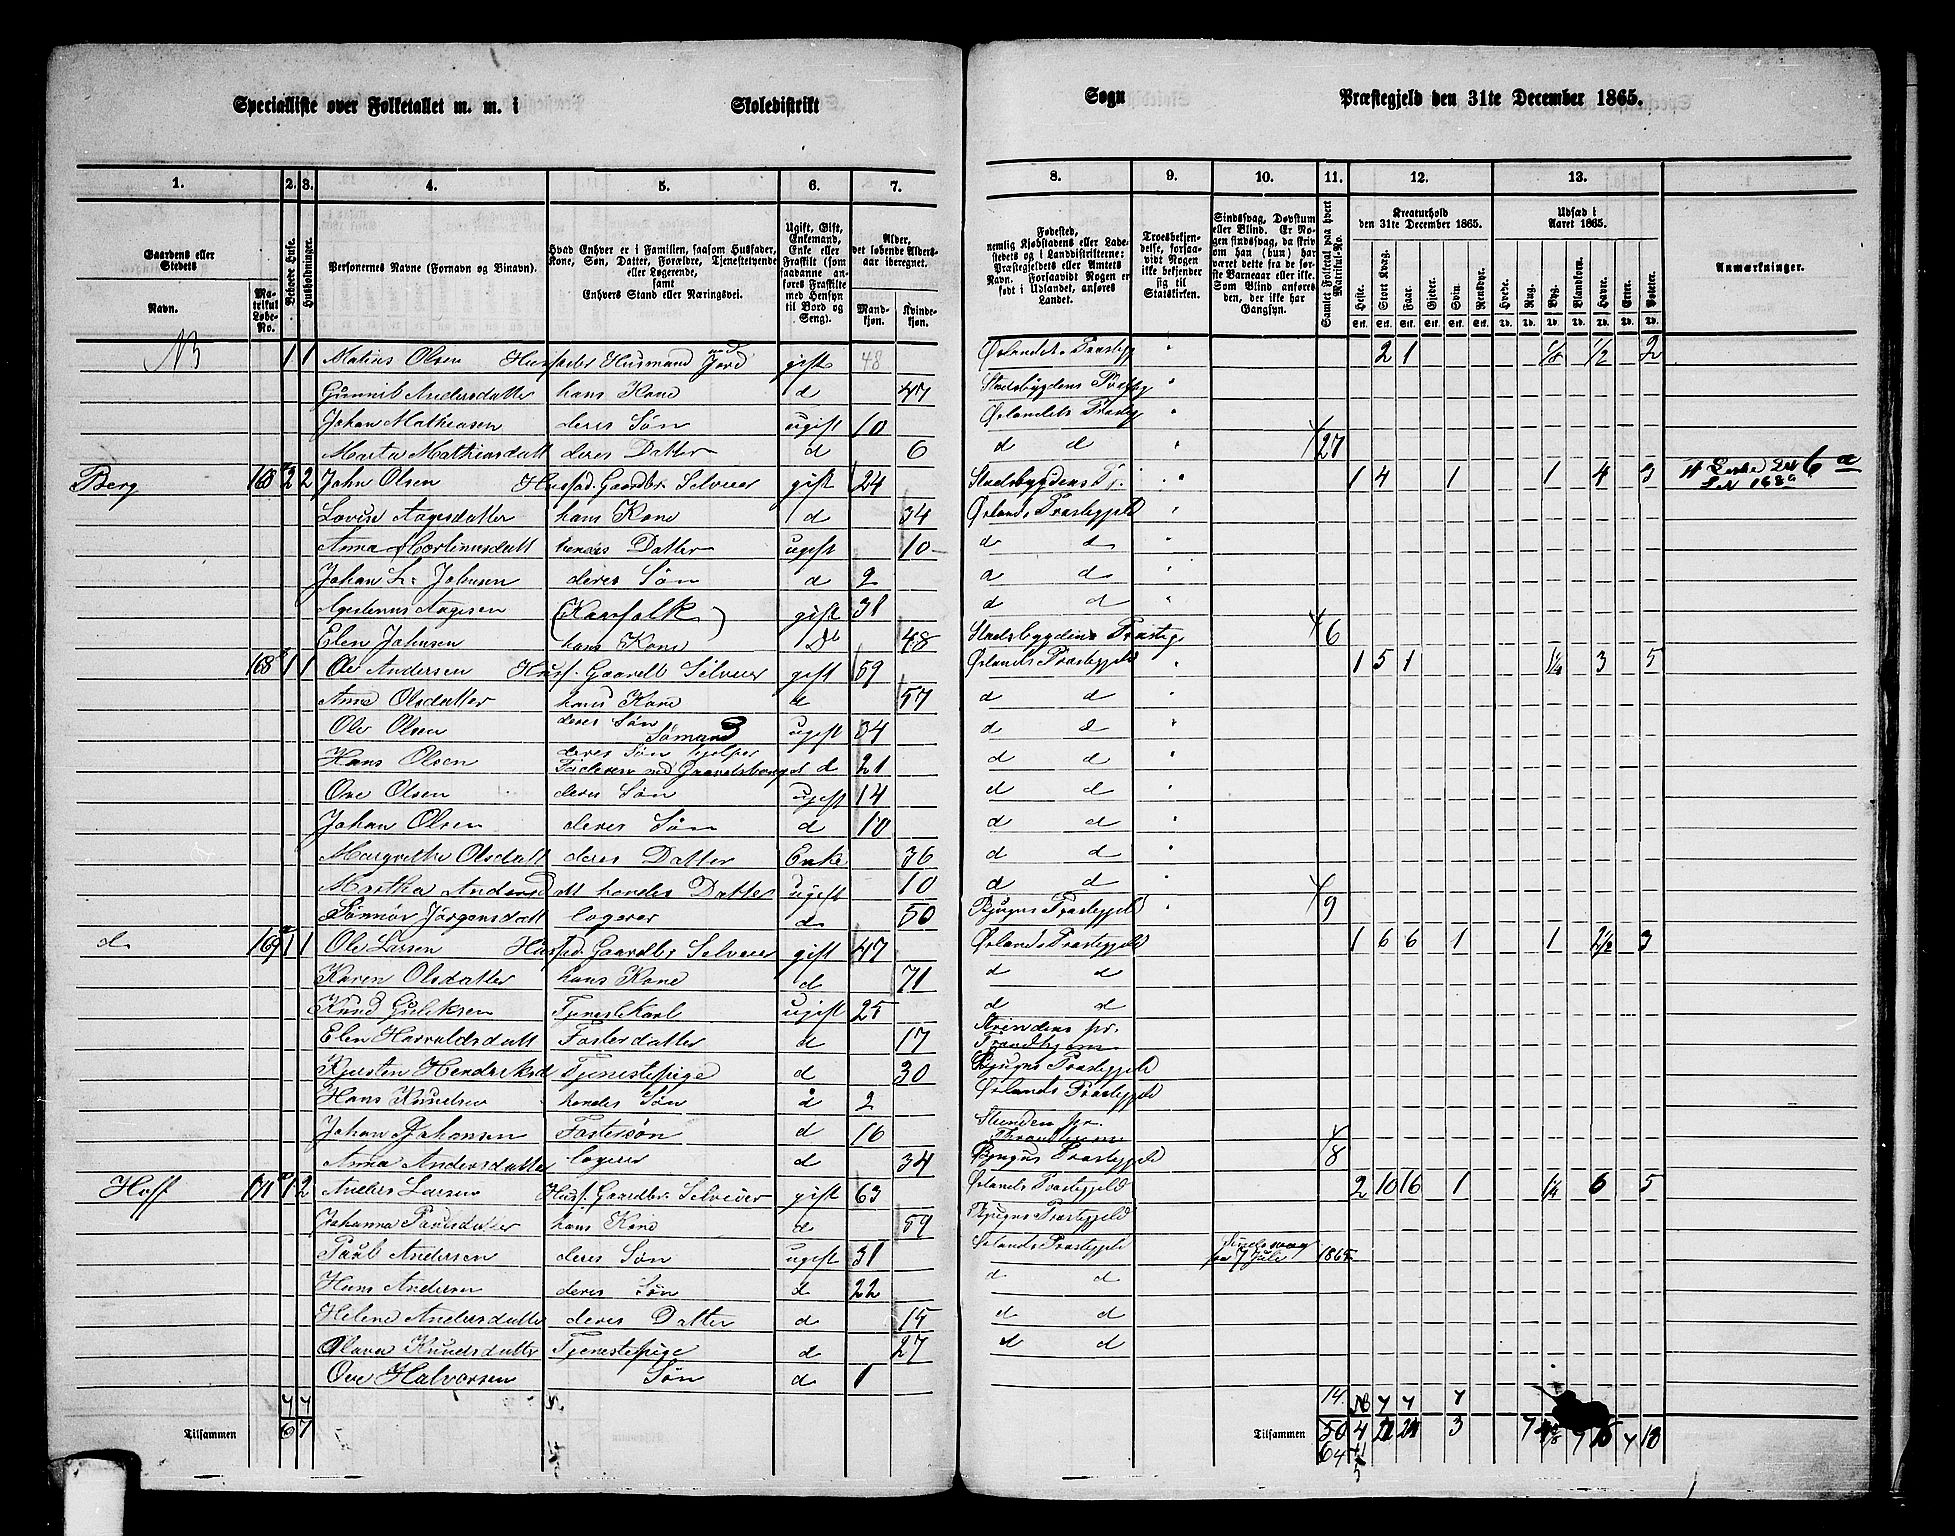 Specialliste over Folketallet m. m. i Skoledistrikt Sogn Præstegjeld den 31te December 1865.
1. 2. 3. 4. 5. 6. 7. 8. 9. 10. 11. 12. 13.
Gaardens eller Stedets
Navn. Matrikul Løbe-No.
Beboede Huse.
Husholdninger.
Personernes Navne (Fornavn og Binavn).
Hvad Enhver er i Familien, saasom Husfader, Kone, Søn, Datter, Forældre, Tjenestetyende eller Logerende, samt Enhvers Stand eller Næringsvei.
Ugift, Gift, Enkemand, Enke eller Fraskilt (som saadanne anføres Fraskilte med Hensyn til Bord og Seng).
Alder, det løbende Aldersaar iberegnet.
Mandkjøn. Kvindekjøn.
Fødested, nemlig Kjøbstadens eller Ladestedets og i Landdistrikterne: Præstegjeldets eller Amtets Navn. Forsaavidt Nogen er født i Udlandet, anføres Landet.
Troesbekjendelse, forsaavidt Nogen ikke bekjender sig til Statskirken.
Sindssvag, Døvstum eller Blind. Er Nogen sindssvag, da skriv om han (hun) har været dette fra de første Barneaar eller ikke. Som Blind anføres den, der ikke har Gangsyn.
Samlet Folketal paa hvert Matrikul-No.
Kreaturhold den 31te December 1865.
Heste. Stort Kvæg. Faar. Gjeder. Svin. Rensdyr.
Udsæd i Aaret 1865.
Hvede. Rug. Byg. Blandkorn. Havre. Erter. Poteter.
Anmærkninger.
1 1 Matius Olsen Husfader Husmand med Jord gift 48 Ørlandets Præsteg 2 1 1/8 1/2 2
Gunnil Andersdatter hans Kone d 47 Stadsbygdens Præstg
Johan Mathiasen deres Søn ugift 10 Ørlandets Præsteg
Marta Mathiasdatt deres Datter d 6 d d 27
Berg 168 a 2 2 John Olsen Husfad. Gaardbr. Selveier gift 24 Stadsbygdens Pr. 1 4 1 1 4 3
Lovise Aagesdatter hans Kone d 34 Ørlands Præstegjeld
Anna Martinusdatt hendes Datter ugift 10 d d
Johan L. Johnsen deres Søn d 2 d d
Agestenus Aagesen (Kaarfolk) gift 31 d d
Elen Johnsen hans Kone D 48 Stadsbygdens Præsteg 6
168 1 1 Ole Andersen Husf. Gaardb Selveier gift 59 Ørlands Præstegjeld 1 5 1 1 1/4 3 5
Anne Olsdatter hans Kone d 57 d d
Ole Olsen deres Søn Sømand ugift 34 d d
Hans Olsen deres Søn hjelper Faderen ved Gaardsbruget d 21 d d
Ove Olsen deres Søn ugift 14 d d
Johan Olsen deres Søn d 10 d d
Margrethe Olsdatt deres Datter Enke 36 d d
Martha Andersdatt hendes Datter ugift 10 d d
Sønnøv Jørgensdatt logerer d 50 Bjugns Præstegjeld 9
d 169 a 1 1 Ole Larsen Husfad. Gaardbr. Selveier gift 47 Ørlands Præstegjeld 1 6 6 1 1 2 1/2 3
Karen Olsdatter hans Kone d 71 d d
Knud Guliksen Tjenestekarl ugift 25 d d
Elen Harraldsdatt Fosterdatter d 17 Strindens pr. Trondhjem
Kjersten Hendriksd Tjenestepige d 30 Bjugns Præstegjeld
Hans Knudsen hendes Søn d 2 Ørlands Præstegjeld
Johan Johansen Fostersøn d 16 Strinden pr. Throndhjem
Anna Andersdatter logerer d 34 Bjugns Præstegjeld 8
Hoff 171 1 2 Anders Larsen Husf. Gaardbr. Selveier gift 63 Ørlands Præstegjeld 2 10 16 1 1 1/4 6 5
Johanna Paulsdatter hans Kone d 59 Bjugns Præstegjeld
Paul Andersen deres Søn ugift 31 Ørlands Præstegjeld Sindssvag fra 7 Juli 1865
Hans Andersen deres Søn d 22 d d
Helene Andersdatter deres Datter d 15 d d
Olava Knudsdatter Tjenestepige d 27 d d
Ove Halvorsen Søn d 1
Tilsammen 6 7 Tilsammen 50 4 3 7 18
64 5